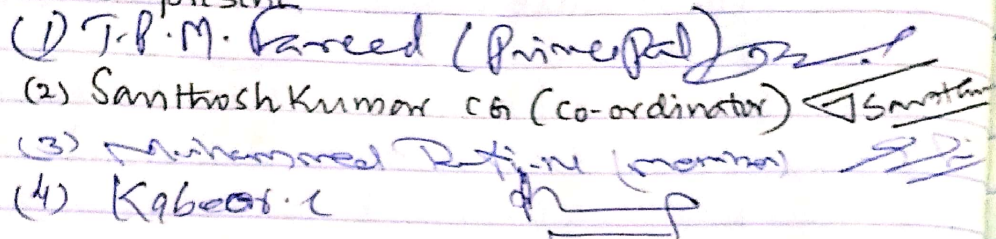 (1) T.P.M. Fareed (Principal)
(2) Santhosh Kumar CG (Co-ordinator)
(3) Muhammed (member)
(4) Kabeer. C